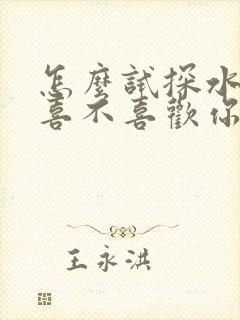 怎麼試探水
喜不喜歡你
王永洪